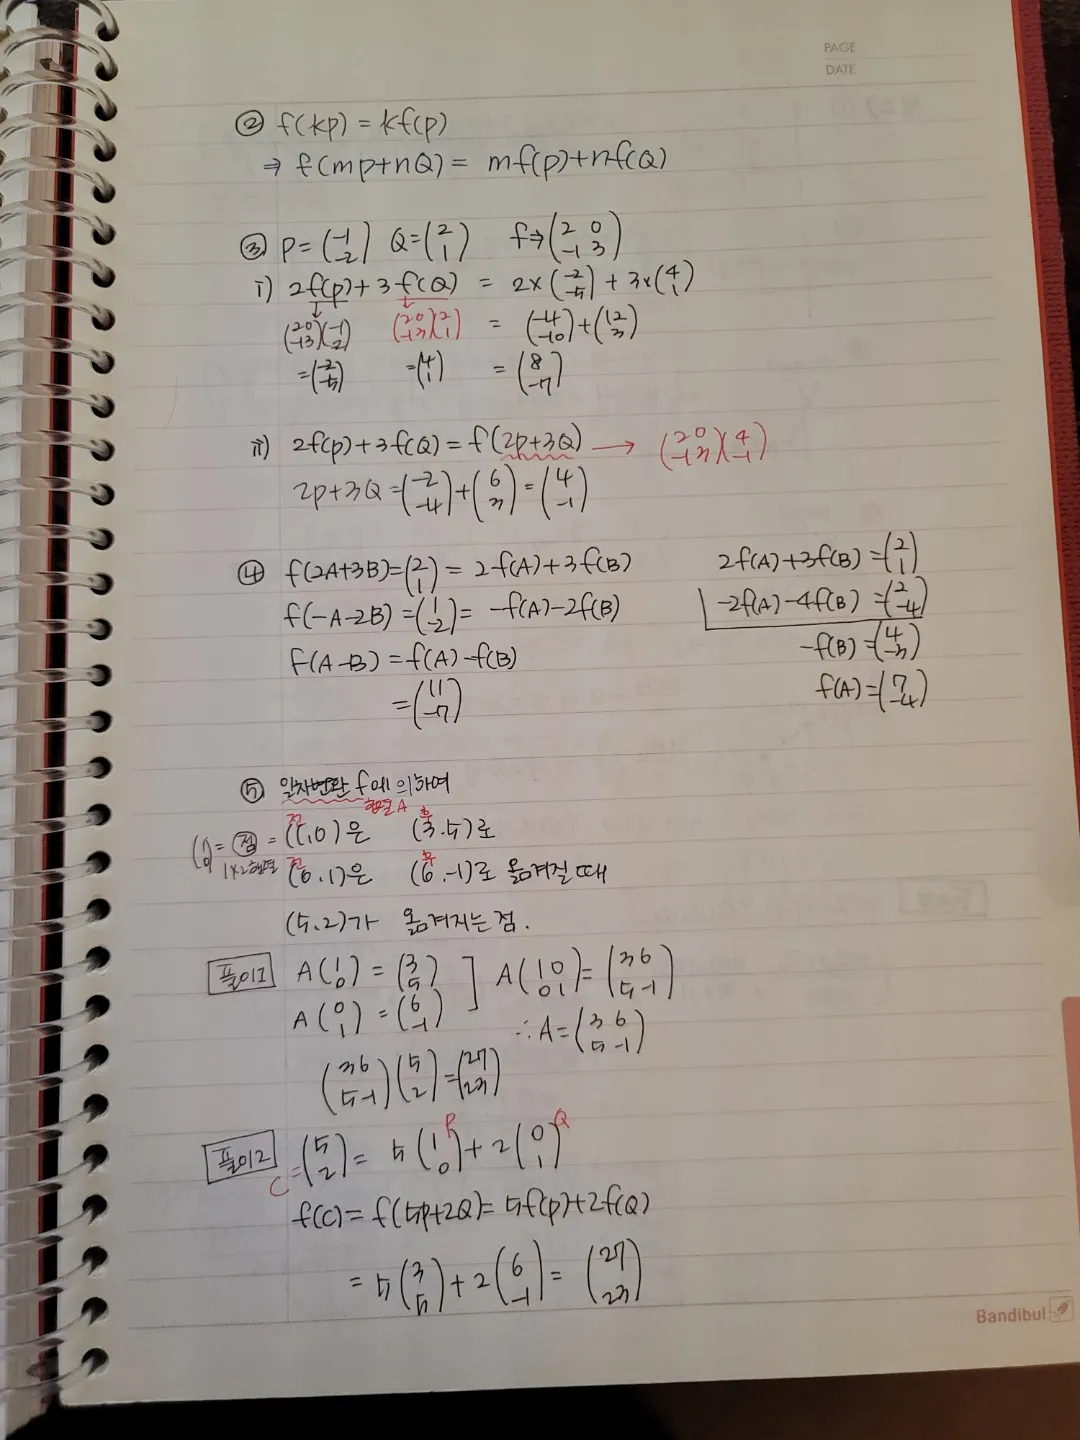 PAGE
DATE
② f(kp) = kf(p)
⇒ f(mp+nQ) = mf(p)+nf(Q)
③ P=(-1 -2) Q=(2 1) f⇒(2 0 -1 3)
i) 2f(p)+3f(Q) = 2×(-2 -5)+3×(4 1)
(2 0 -1 3)(-1 -2) (2 0 -1 3)(2 1) = (-4 -10)+(12 3)
=(-2 -5) =(4 1) = (8 -7)
ii) 2f(p)+3f(Q) = f(2p+3Q) → (2 0 -1 3)(4 -1)
2p+3Q=(-2 -4)+(6 3)=(4 -1)
④ f(2A+3B)=(2 1) = 2f(A)+3f(B) 2f(A)+3f(B)=(2 1)
f(-A-2B)=(1 -2)= -f(A)-2f(B) -2f(A)-4f(B)=(2 -4)
f(A-B)=f(A)-f(B) -f(B)=(4 -3)
=(11 -7) f(A)=(7 -4)
⑤ 일차변환 f에 의하여
행렬A
전 후
(1 0)=점=(1,0)은 (3.5)로
1×2행렬 전 후
(0.1)은 (6.-1)로 옮겨질 때
(5.2)가 옮겨지는 점.
풀이1 A(1 0)=(3 5) ] A(1 0 0 1)=(3 6 5 -1)
A(0 1)=(6 -1) ∴A=(3 6 5 -1)
(3 6 5 -1)(5 2)=(27 23)
P Q
풀이2 C=(5 2)= 5(1 0)+2(0 1)
f(c)=f(5p+2Q)=5f(p)+2f(Q)
=5(3 5)+2(6 -1)=(27 23)
Bandibul